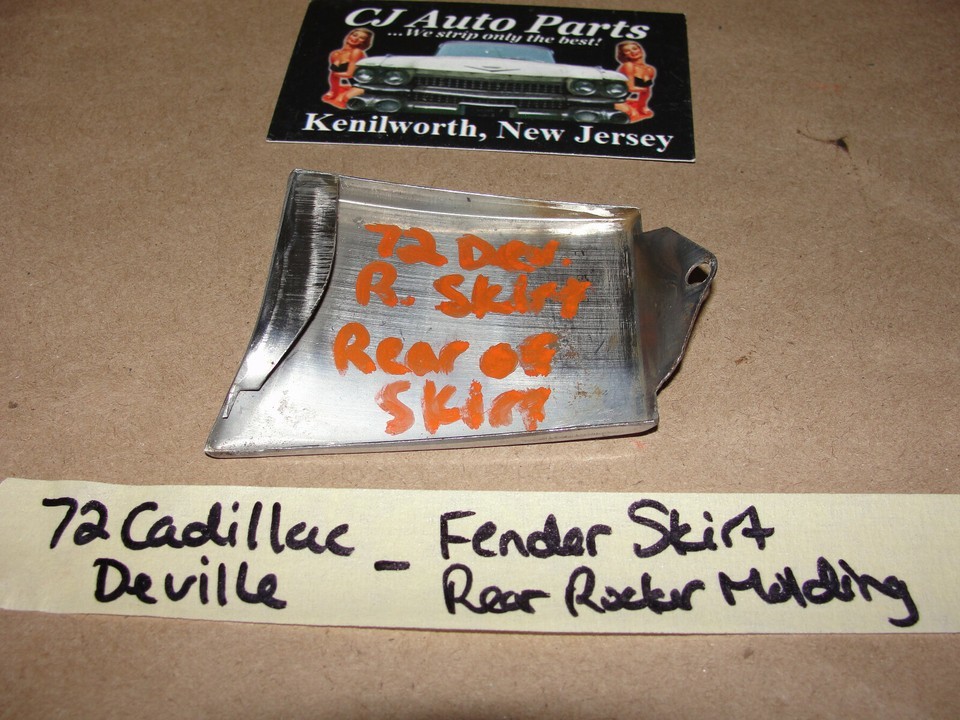 CJ Auto Parts
...We strip only the best!
Kenilworth, New Jersey
72 Dev.
R. Skirt
Rear of
Skirt
72 Cadillac
Deville
- Fender Skirt
Rear Rocker Molding